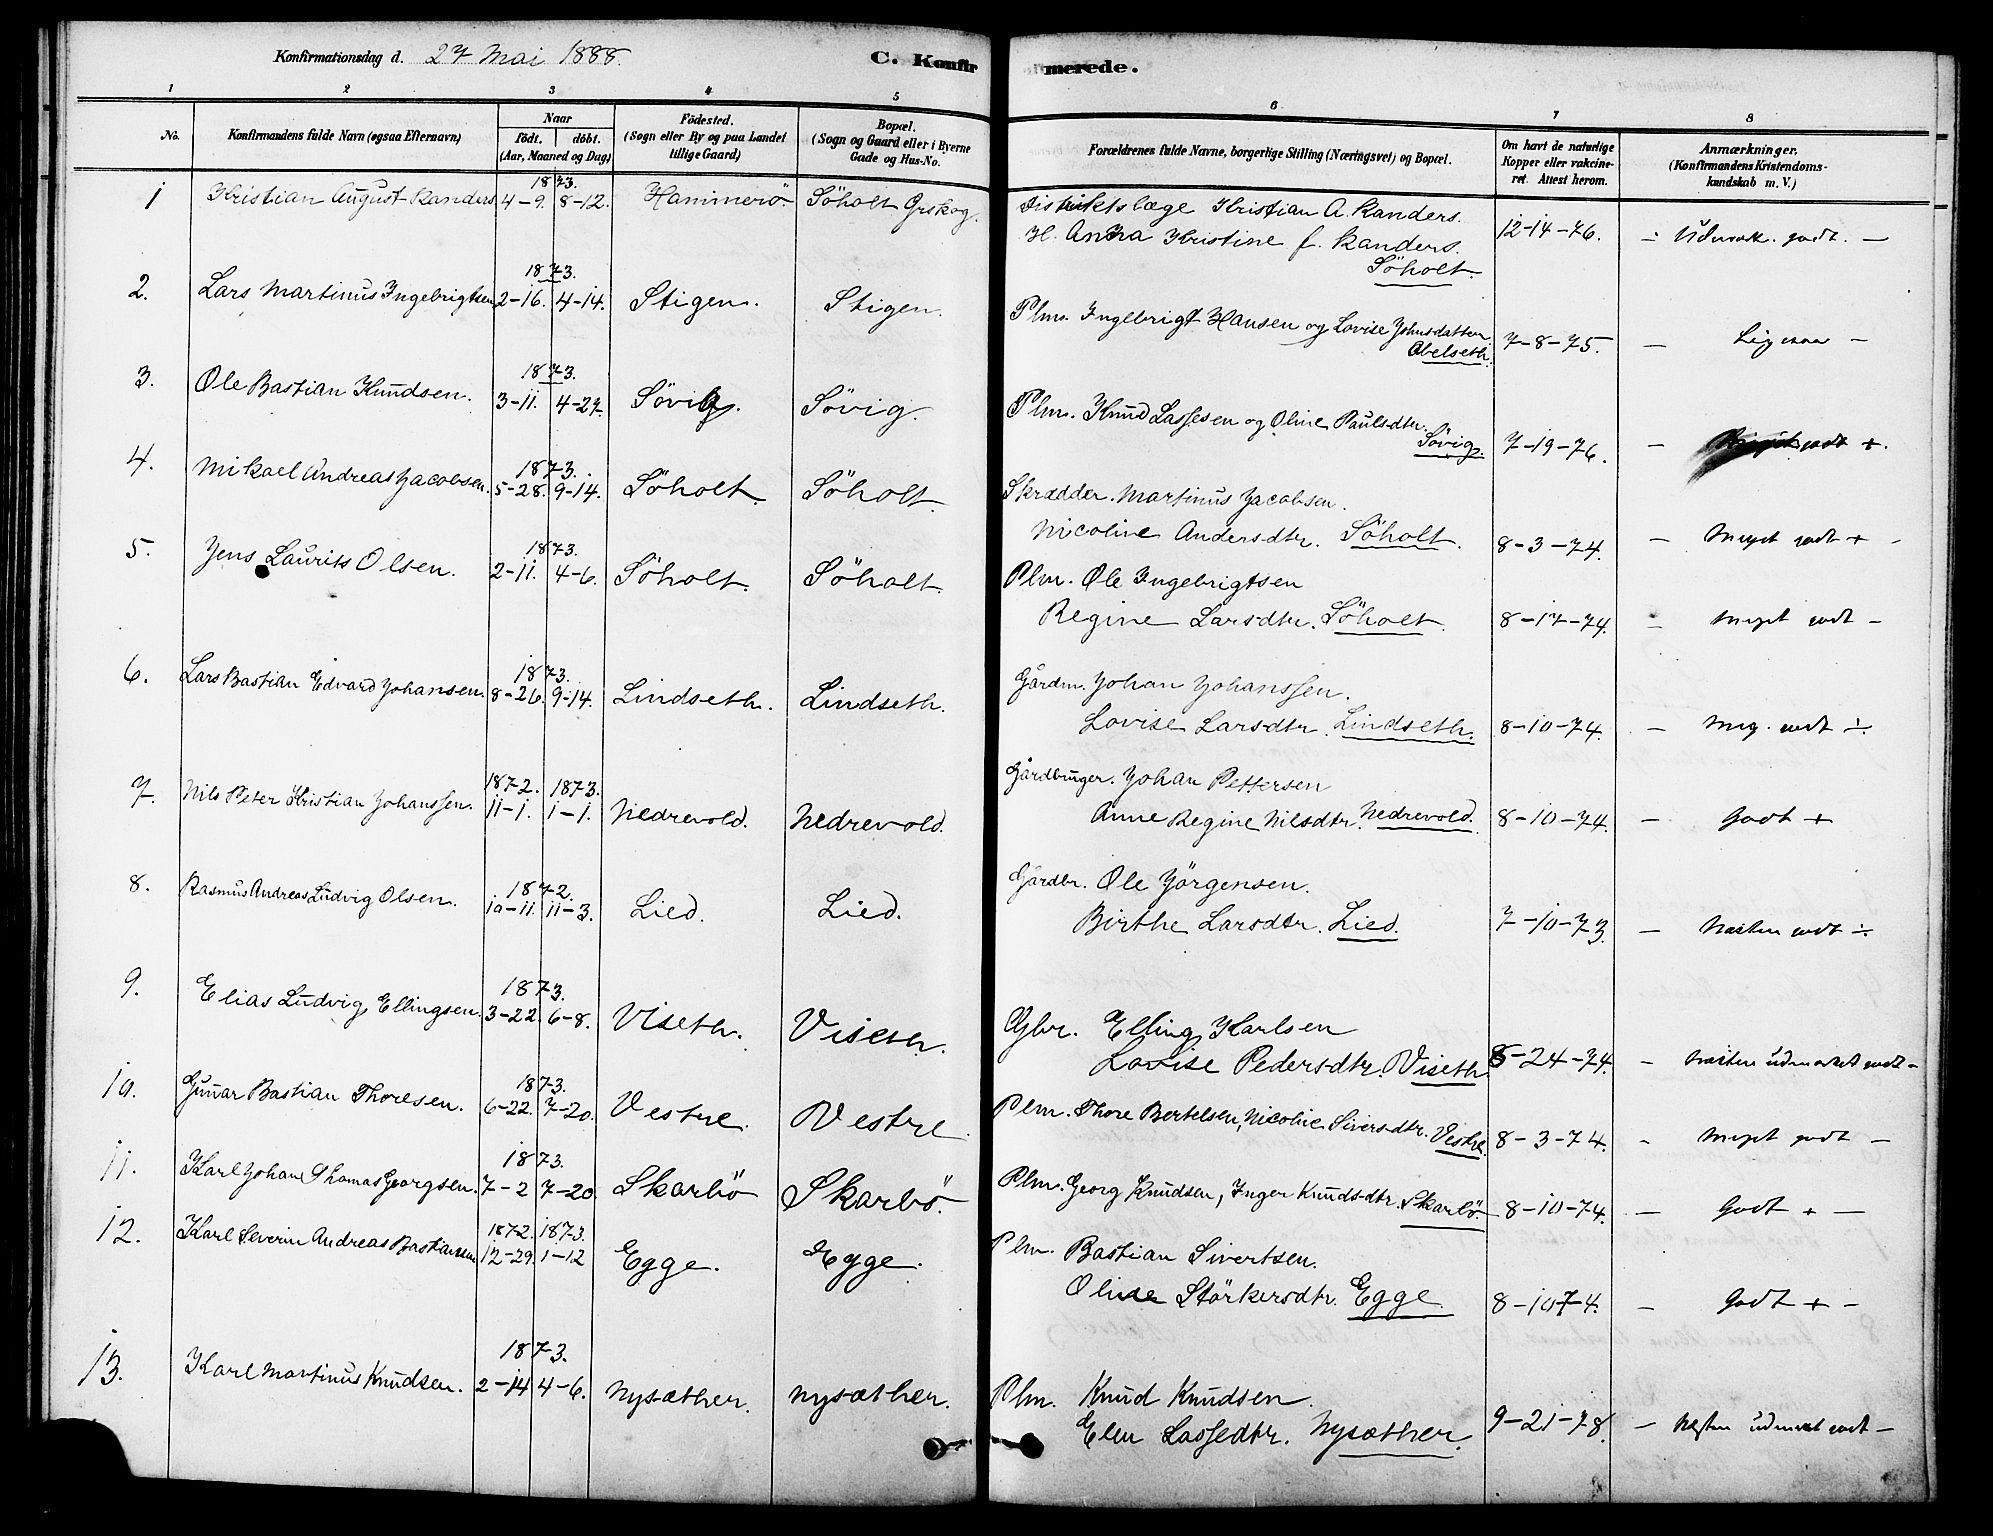 Konfirmationsdag d. 27 Mai 1888.
C. Konfirmerede.
1 2 3 4 5 6 7 8
No. Konfirmandens fulde Navn (ogsaa Efternavn) Naar födt. döbt. (Aar, Maaned og Dag) Födested. (Sogn eller By og paa Landet tillige Gaard) Bopæl. (Sogn og Gaard eller i Byerne Gade og Hus-No. Forældrenes fulde Navne, borgerlige Stilling (Næringsvei) og Bopæl. Om havt de naturlige Kopper eller vakcineret. Attest herom. Anmærkninger. (Konfirmandens Kristendomskundskab m. V.)
1873.
1 Kristian August Randers 4-9. 8-12. Hammerö. Söholt Örskog. Distriktslæge Kristian A. Randers. 12-14-76. - Udmærk. godt. -
H. Anna Kristine f. Randers.
Söholt.
1873.
2. Lars Martinus Ingebrigtsen 2-16. 4-14. Stigen. Stigen. Plm. Ingebrigt Hansen og Lovise Johnsdatter 7-8-75. -
Abelseth.
1873.
3. Ole Bastian Knudsen. 3-11. 4-27. Sövig. Sövig. Plm. Knud Lassesen og Oline Paulsdtr. 7-19-76. - godt +.
Sövig.
1873.
4. Mikael Andreas Jacobsen. 5-28. 9-14. Söholt. Söholt. Skrædder. Martinus Jacobsen.
Nicoline Andersdtr. Söholt. 8-3-74. - Meget godt + -
1873.
5. Jens Laurits Olsen. 2-11. 4-6. Söholt. Söholt. Plm. Ole Ingebrigtsen
Regine Larsdtr. Söholt. 8-17-74. - Meget godt -
1873.
6. Lars Bastian Edvard Johansen. 8-26. 9-14. Lindseth. Lindseth. Gårdm. Johan Johanssen.
Lovise Larsdtr. Lindseth. 8-10-74. - Meg. godt ÷
1872. 1873.
7. Nils Peter Kristian Johanssen. 11-1. 1-1. Nedrevold. Nedrevold. Gårdbruger. Johan Pettersen
Anne Regine Nilsdtr. Nedrevold. 8-10-74. - Godt +
1872.
8. Rasmus Andreas Ludvig Olsen. 10-11. 11-3. Lied. Lied. Gårdbr. Ole Jörgensen.
Birthe Larsdtr. Lied. 7-10-73. - Næsten godt ÷
1873.
9. Elias Ludvig Ellingsen. 3-22. 6-8. Viseth. Viseth. Gbr. Elling Karlsen
Lovise Pedersdtr. Viseth. 8-24-74. - Næsten udmærket godt -
1873.
10. Gunnar Bastian Thoresen. 6-22. 7-20. Vestre. Vestre. Plm. Thore Bertelsen, Nicoline Siversdtr. Vestre. 8-3-74. - Meget godt -
1873.
11. Karl Johan Thomas Georgsen. 7-2 7-20. Skarbö Skarbö. Plm. Georg Knudsen, Inger Knudsdtr. Skarbö. 8-10-74. - Godt + -
1872. 1873.
12. Karl Severin Andreas Bastianssen 12-29. 1-12 Egge. Egge. Plm. Bastian Sivertsen.
Oline Störkersdtr. Egge. 8-10-74. - Godt + -
1873.
13. Karl Martinus Knudsen. 2-14 4-6. Nysæther. Nysæther. Plm. Knud Knudsen.
Elen Lassedtr. Nysæther. 9-21-78. - Næsten udmærket godt -